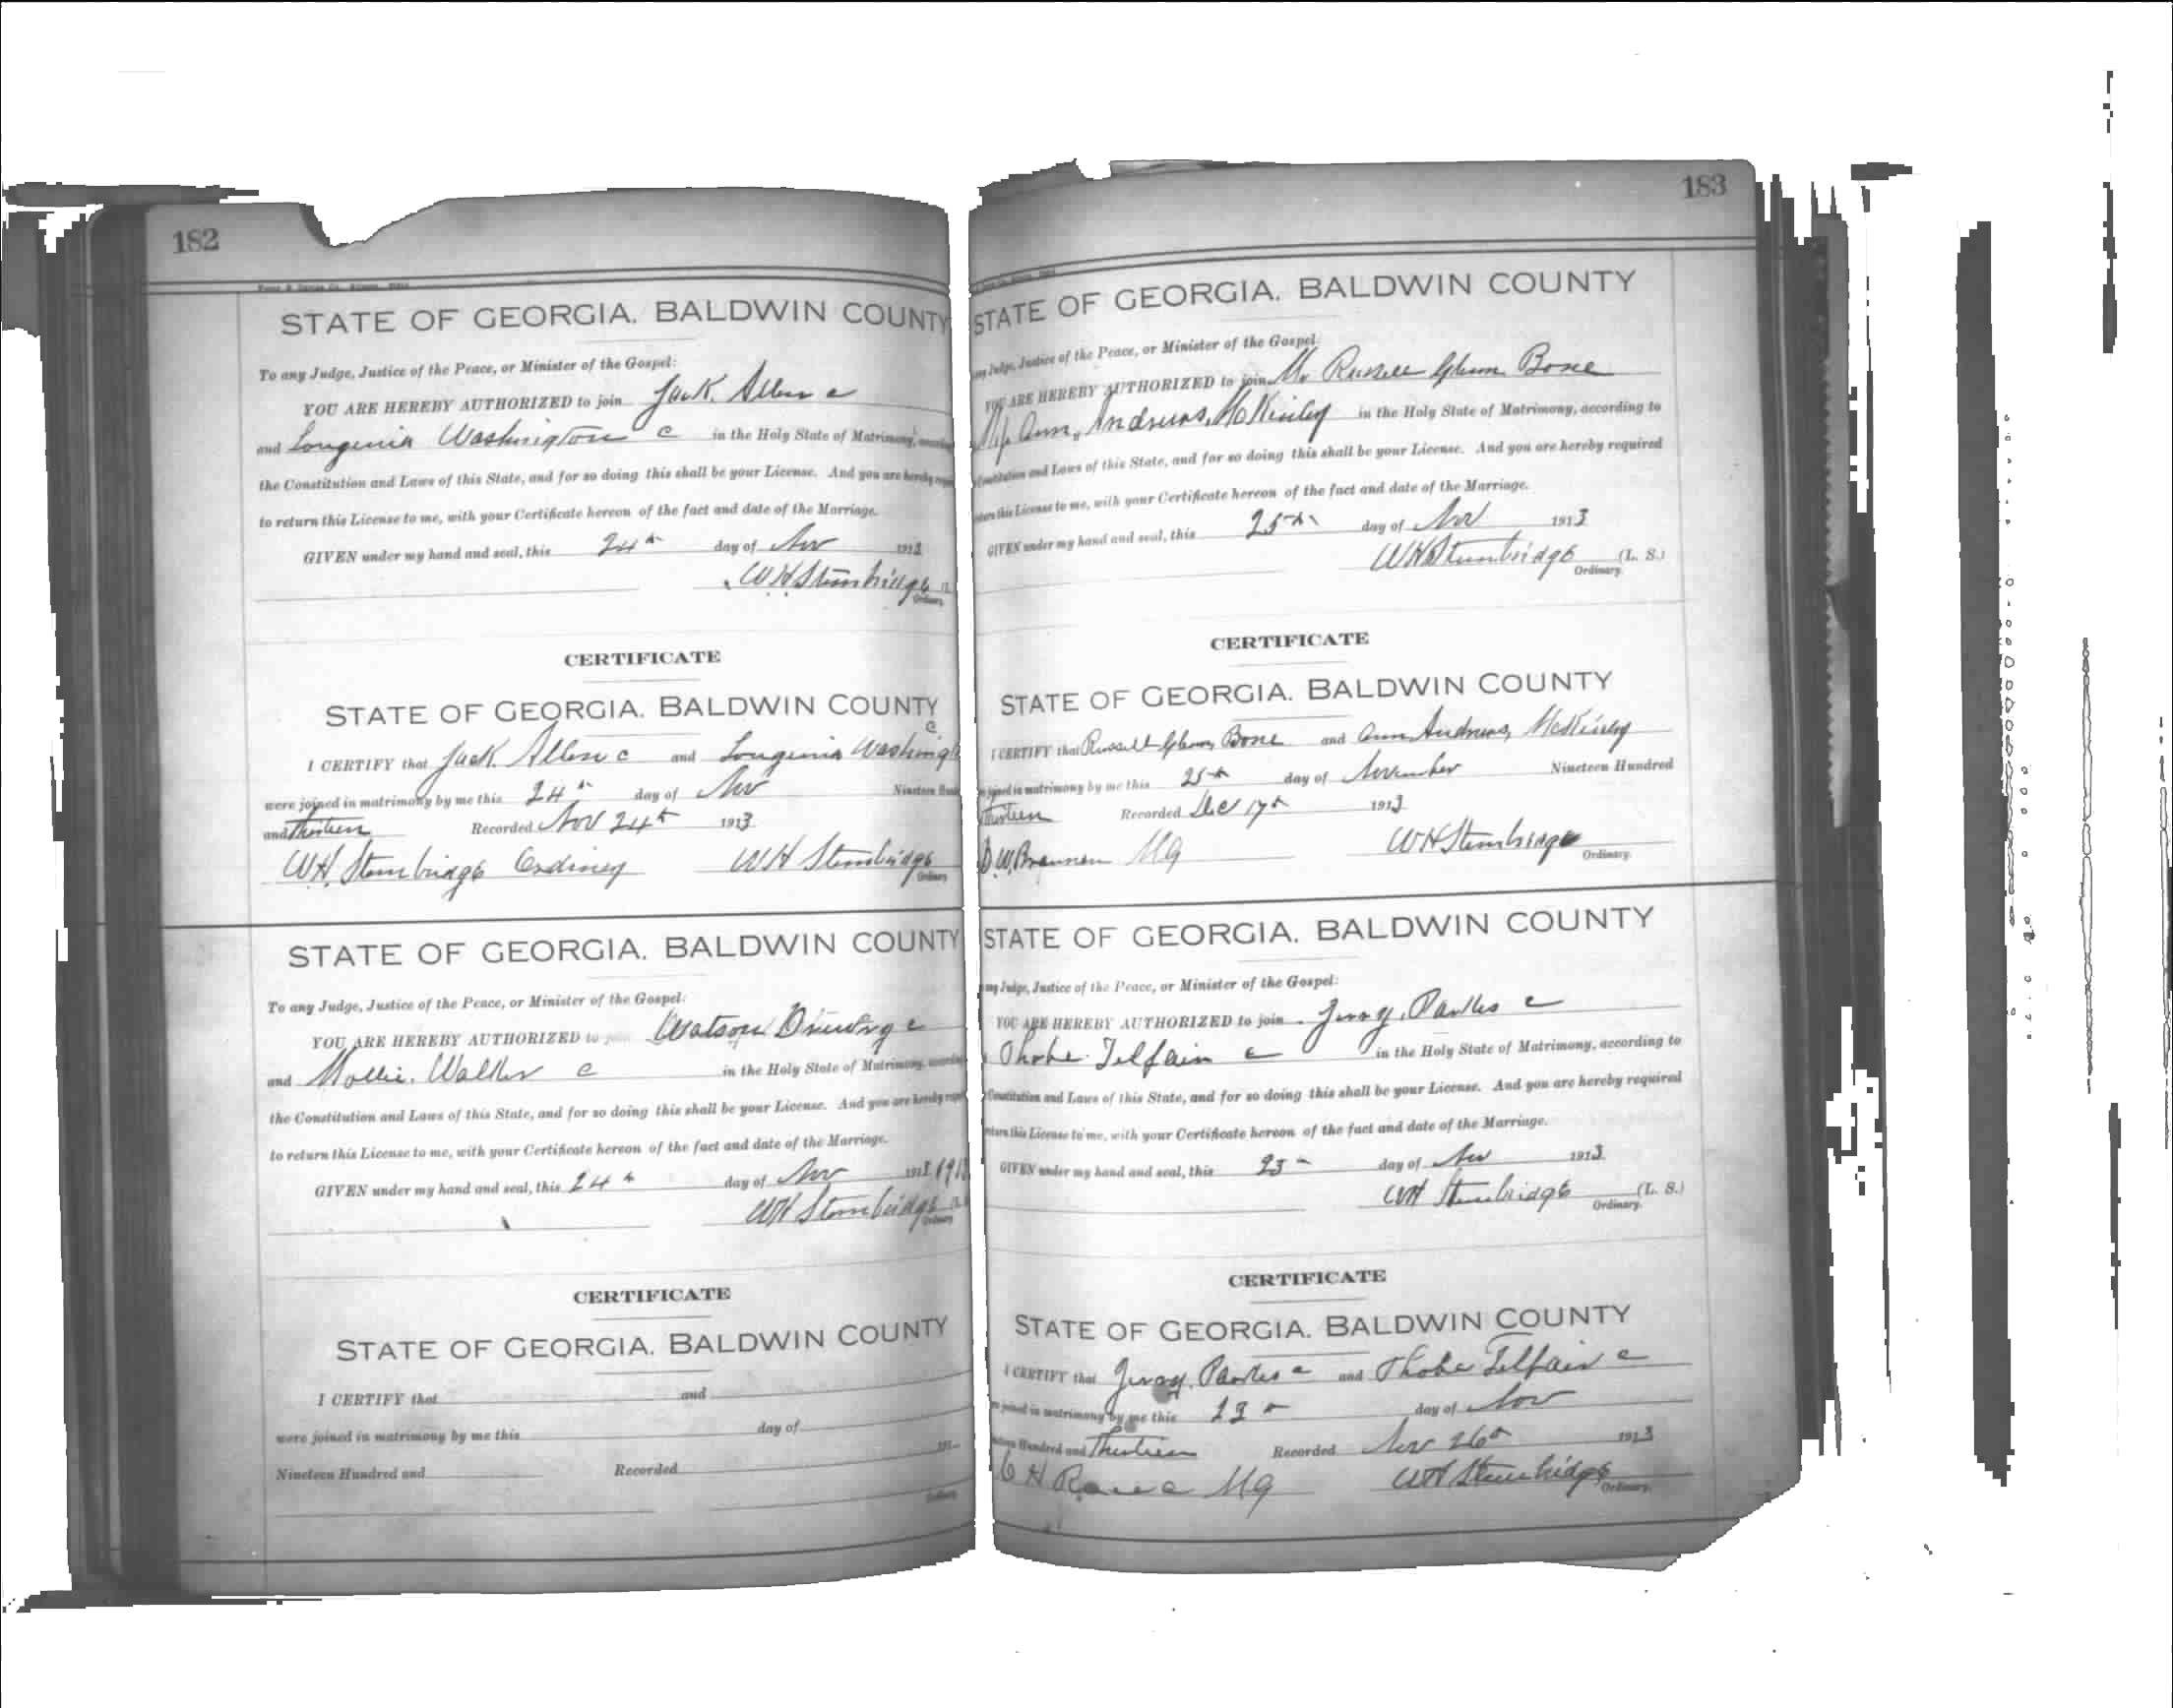 182
STATE OF GEORGIA. BALDWIN COUNTY
To any Judge, Justice of the Peace, or Minister of the Gospel:
YOU ARE HEREBY AUTHORIZED to join Jack. Allen c
and Lougenia Washington c in the Holy State of Matrimony,
the Constitution and Laws of this State, and for so doing this shall be your License. And you are hereby
to return this License to me, with your Certificate hereon of the fact and date of the Marriage.
GIVEN under my hand and seal, this 24th day of Nov 1913
W.H. Stembridge
Ordinary
CERTIFICATE
STATE OF GEORGIA. BALDWIN COUNTY
c
I CERTIFY that Jack. Allen c and Lougenia Washingt
were joined in matrimony by me this 24th day of Nov Nineteen
and Thirteen Recorded Nov 24th 1913
W.H. Stembridge Ordinary WH Stembridge
Ordinary
STATE OF GEORGIA. BALDWIN COUNTY
To any Judge, Justice of the Peace, or Minister of the Gospel:
YOU ARE HEREBY AUTHORIZED to join Watson c
and Mollie. Walker c in the Holy State of Matrimony,
the Constitution and Laws of this State, and for so doing this shall be your License. And you are hereby
to return this License to me, with your Certificate hereon of the fact and date of the Marriage.
GIVEN under my hand and seal, this 24th day of Nov
WH Stembridge
Ordinary
CERTIFICATE
STATE OF GEORGIA. BALDWIN COUNTY
I CERTIFY that and
were joined in matrimony by me this day of
Nineteen Hundred and Recorded 191
Ordinary
183
STATE OF GEORGIA. BALDWIN COUNTY
any Judge, Justice of the Peace, or Minister of the Gospel:
YOU ARE HEREBY AUTHORIZED to join Mr Russell Glenn Bone
Ann, Andrews, McKinley in the Holy State of Matrimony, according to
Constitution and Laws of this State, and for so doing this shall be your License. And you are hereby required
this License to me, with your Certificate hereon of the fact and date of the Marriage.
GIVEN under my hand and seal, this 25th day of Nov 1913
WH Stembridge (L. S.)
Ordinary.
CERTIFICATE
STATE OF GEORGIA. BALDWIN COUNTY
I CERTIFY that Russell Glenn, Bone and Ann Andrews, McKinley
joined in matrimony by me this 25th day of November Nineteen Hundred
Thirteen Recorded Dec 17th 1913
D.W. Brannen MG WH Stembridge
Ordinary.
STATE OF GEORGIA. BALDWIN COUNTY
any Judge, Justice of the Peace, or Minister of the Gospel:
YOU ARE HEREBY AUTHORIZED to join c
Telfair c in the Holy State of Matrimony, according to
Constitution and Laws of this State, and for so doing this shall be your License. And you are hereby required
this License to me, with your Certificate hereon of the fact and date of the Marriage.
GIVEN under my hand and seal, this day of Nov 1913
WH Stembridge (L. S.)
Ordinary.
CERTIFICATE
STATE OF GEORGIA. BALDWIN COUNTY
I CERTIFY that c and Telfair c
joined in matrimony by me this day of Nov
Hundred and Thirteen Recorded Nov 26th 1913
MG WH Stembridge
Ordinary.